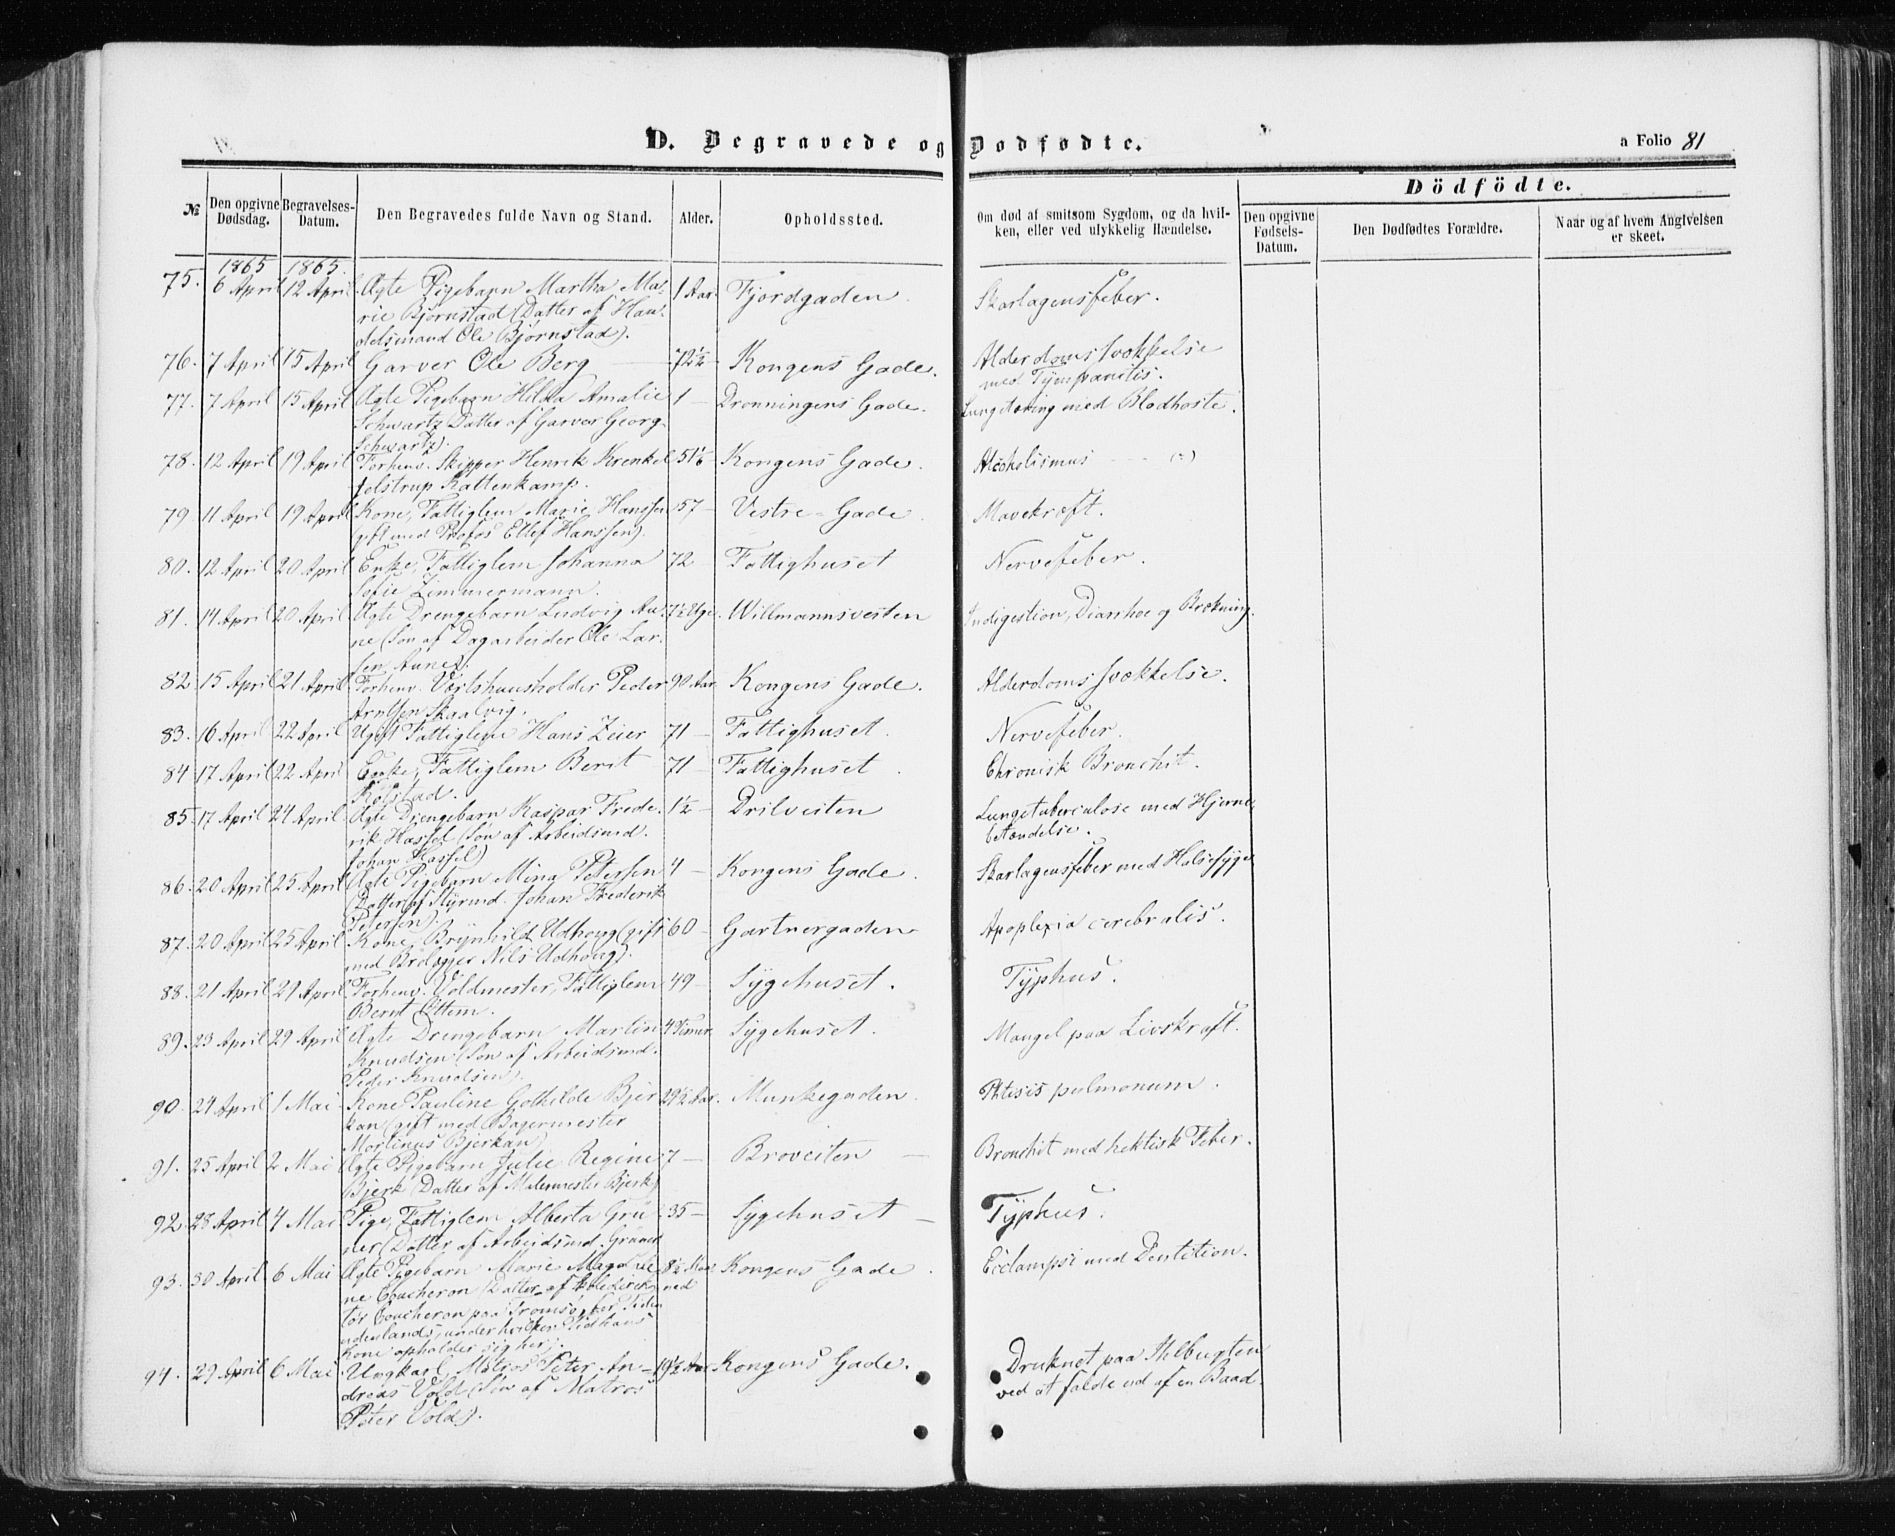 D. Begravede og Dødfødte.
a Folio 81
№
Den opgivne Dødsdag.
Begravelses-Datum.
Den Begravedes fulde Navn og Stand.
Alder.
Opholdssted.
Om død af smitsom Sygdom, og da hvil-
ken, eller ved ulykkelig Hændelse.
Dödfödte.
Den opgivne Fødsels-Datum.
Den Dødfødtes Forældre.
Naar og af hvem Angivelsen er skeet.
1865 1865.
75. 6 April 12 April Ægte Pigebarn Martha Ma- 1 Aar. Fjordgaden. Skarlagensfeber.
rie Bjørnstad (Datter af Han-
delsmand Ole Bjørnstad).
76. 7 April 15 April Garver Ole Berg 72½ Kongens Gade. Alderdomssvækkelse
med Tympanitis.
77. 7 April 15 April Ægte Pigebarn Hilda Amalie 1 — Dronningens Gade. Lungetæring med Blodhoste.
Schwartz Datter af Garver Georg
Schwartz).
78. 12 April 19 April Forhenv. Skipper Henrik Krenkel 51⅙ Kongens Gade. Alcoholismus
Jelstrup Kattenkamp.
79 11 April 19 April Kone, Fattiglem Marie Hanssen 57 — Vestre-Gade Mavekræft.
gift med Profos Ellef Hanssen).
80. 12 April 20 April Enke, Fattiglem Johanna 72 Fattighuset Nervefeber.
Sofie Zimmermann.
81. 14 April 20 April Ægte Drengebarn Ludvig Au- 7½ Uge. Willmannsveiten Indigestion, Diarrhoe og Brækning.
ne (Søn af Dagarbeider Ole Lar-
sen Aune).
82 15 April 21 April Forhenv. Værtshuusholder Peder 90 Aar Kongens Gade. Alderdomssvækkelse.
Arntsen Skaalvig.
83. 16 April 22 April Ugift Fattiglem Hans Zeier 71 — Fattighuset. Nervefeber.
84 17 April 22 April Enke, Fattiglem Berit 71 — Fattighuset. Chronisk Bronchit.
Kolstad.
85. 17 April 24 April Ægte Drengebarn Kaspar Frede- 1½ — Drilveiten Lungetuberculose med Hjerne-
rik Hassel (Søn af Arbeidsmd. betændelse.
Johan Hassel)
86. 20 April 25 April Ægte Pigebarn Mina Petersen 4 — Kongens Gade. Skarlagensfeber med Halssyge
(Datter af Styrmd. Johan Frederik
Petersen)
87. 20 April 25 April Kone Brynhild Udhoug (gift 60 — Gartnergaden Apoplexia cerebralis.
med Brolægger Nils Udhoug).
88. 21 April 29 April Forhenv. Voldmester, Fattiglem 49 — Sygehuset. Typhus.
Bernt Ottem.
89. 23 April 29 April Ægte Drengebarn Martin 4 Timer. Sygehuset. Mangel paa Livskraft.
Knudsen (Søn af Arbeidsmd.
Peder Knudsen).
90. 24 April 1 Mai Kone Pauline Gothilde Bjer- 29½ Aar. Munkegaden. Phtisis pulmonum.
kan (gift med Bagermester
Martinus Bjerkan)
91. 25 April 2 Mai Ægte Pigebarn Julie Regine 7 — Broveiten — Bronchit med hektisk Feber.
Bjerk (Datter af Malermester Bjerk)
92. 28 April 4 Mai Pige, Fattiglem Alberta Grü- 35 — Sygehuset — Typhus.
ner (Datter af Arbeidsmd. Grüner
93. 30 April 6 Mai Ægte Pigebarn Marie Magdale- 8½ Maa- Kongens Gade. Ecclampsi med Dentition.
ne Coucheron (Datter af Skoledirek- ned
tør Coucheron paa Tromsø, for Tiden
udenlands, under hvilken Tid hans
Kone opholder sig her).
94. 29 April 6 Mai Ungkarl, Matros Peter An- 19½ Aar Kongens Gade. Druknet paa Ihlbugten
dreas Vold (Søn af Matros ved at falde ud af en Baad.
Peter Vold).